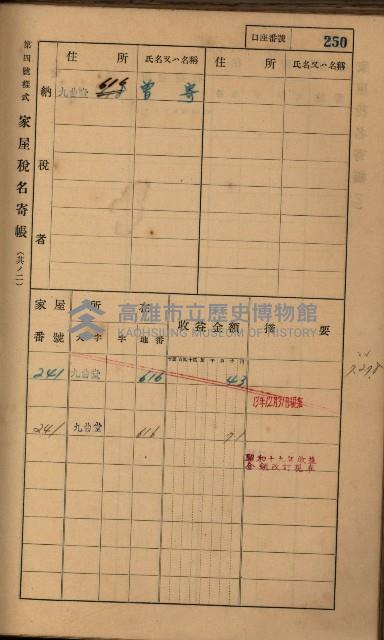 口座番號 250
第四號樣式 家屋稅名寄帳 (其ノ二)
納稅者
住所 氏名又ハ名稱 住所 氏名又ハ名稱
九曲堂 616 曾寄
家屋番號 所在 大字 字 地番 收益金額 摘要
高雄市立歷史博物館
KAOHSIUNG MUSEUM OF HISTORY
241 九曲堂 616 43
13年12月31日現在
241 九曲堂 616 71
昭和十九年收益
金額改訂現在